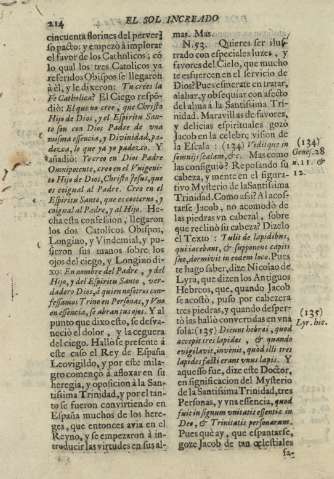 214
EL SOL INCREADO
cincuenta florines del perver-
so pacto: y empezò à implorar
el favor de los Catholicos; cõ
lo qual los tres Catolicos ya
referidos Obispos se llegaron
à èl, y le dixeron: Tu crees la
Fè Catholica? El Ciego respõ-
diò: El que no cree, que Christo
Hijo de Dios, y el Espiritu San-
to son con Dios Padre de una
misma essencia, y Divinidad, pa-
dezca, lo que yo padezco. Y
añadiò: Yo creo en Dios Padre
Omnipotente, creo en el Vnigeni-
to Hijo de Dios, Christo Jesus, que
es coigual al Padre. Creo en el
Espiritu Santo, que es coeterno, y
coigual al Padre, y al Hijo. He-
cha esta confession, llegaron
los dos Catolicos Obispos,
Longino, y Vindemial, y pu-
sieron sus manos sobre los
ojos del ciego, y Longino di-
xo: En nombre del Padre, y del
Hijo, y del Espiritu Santo, ver-
dadero Dios, à quien nosotros con-
fessamos Trino en Personas, y Vno
en essencia, se abran tus ojos. Y al
punto que dixo esto, se desva-
neciò el dolor, y la ceguera
del ciego. Hallose presente à
este caso el Rey de España
Leovigildo, y por este mila-
gro començò à afloxar en su
heregia, y oposicion à la San-
tissima Trinidad, y por el tan-
to se fueron convirtiendo en
España muchos de los here-
ges, que entonces avia en el
Reyno, y se empezaron à in-
troducir las virtudes en sus al-
mas. Mas.
N. 52. Quieres ser ilus-
trado con especiales luzes, y
favores del Cielo, que mucho
te esfuercen en el servicio de
Dios? Pues esmerate en tratar,
alabar, y obsequiar con afecto
del alma à la Santissima Tri-
nidad. Maravillas de favores,
y delicias espirituales gozò
Jacob en la celebre vision de
la Escala: (134) Vedit que in
somnijs scalam, &c. Mas como
las consiguiò? Reposando su
cabeza, y mente en el figura-
tivo Mysterio de la Santissima
Trinidad. Como assi? Al acos-
tarse Jacob, no acomodò de
las piedras vn cabezal, sobre
que reclinò su cabeza? Dizelo
el Texto: Tulit de lapidibus,
qui iacebant, & supponens capiti
suo, dormivit in eodem loco. Pues
te hago saber, dize Nicolao de
Lyra, que dizen los Antiguos
Hebreos, que, quando Jacob
se acostò, puso por cabezera
tres piedras, y quando desper-
tò las hallò convertidas en vna
sola: (135) Dicunt hebræi, quod
accepit tres lapides, & quando
evigilavit, invenit, quòd illi tres
lapides facti erant vnus lapis. Y
aquesso fue, dize este Doctor,
en significacion del Mysterio
de la Santissima Trinidad, tres
Personas, y vna essencia, quod
fuit in signum vnitatis essentiæ in
Deo, & Trinitatis personarum.
Pues què ay, que espantarse,
goze Jacob de tan celestiales
fa-
(134)
Genes. 28
n. 11. &
12.
(135)
Lyr. hic.